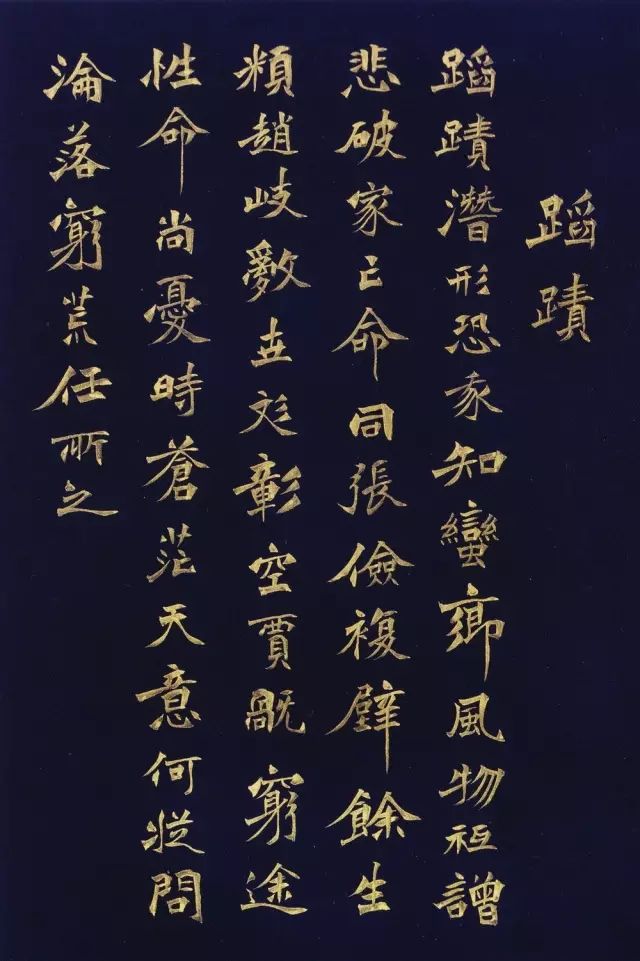 蹈蹟
蹈蹟潛形恐豕知蠻鄉風物祗譄
悲破家亡命同張儉複壁餘生
類趙岐世彣彰空賈旤窮途
性命尚憂時蒼茫天意何從問
淪落窮荒任所之